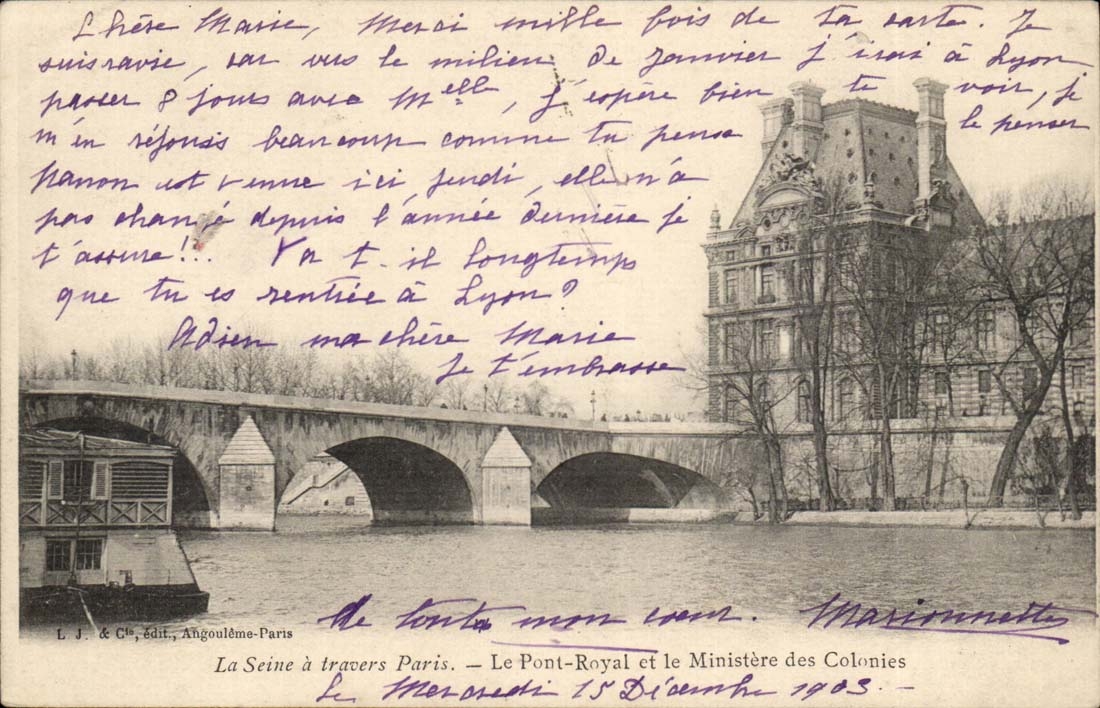 Chère Marie, Merci mille fois de ta carte. Je
suis ravie, car vers le milieu de Janvier j'irai à Lyon
passer 8 jours avec Melle, j'espère bien te voir, je
m'en réjouis beaucoup comme tu pense le penser
Manon est venue ici jeudi, elle n'a
pas changé depuis l'année dernière je
t'assure!!. Ya t-il longtemps
que tu es rentrée à Lyon?
Adieu ma chère Marie
Je t'embrasse
de tout mon cœur. Marionnette
L. J. & Cie, édit., Angoulême-Paris
La Seine à travers Paris. — Le Pont-Royal et le Ministère des Colonies
Le Mercredi 15 Décembre 1903.-